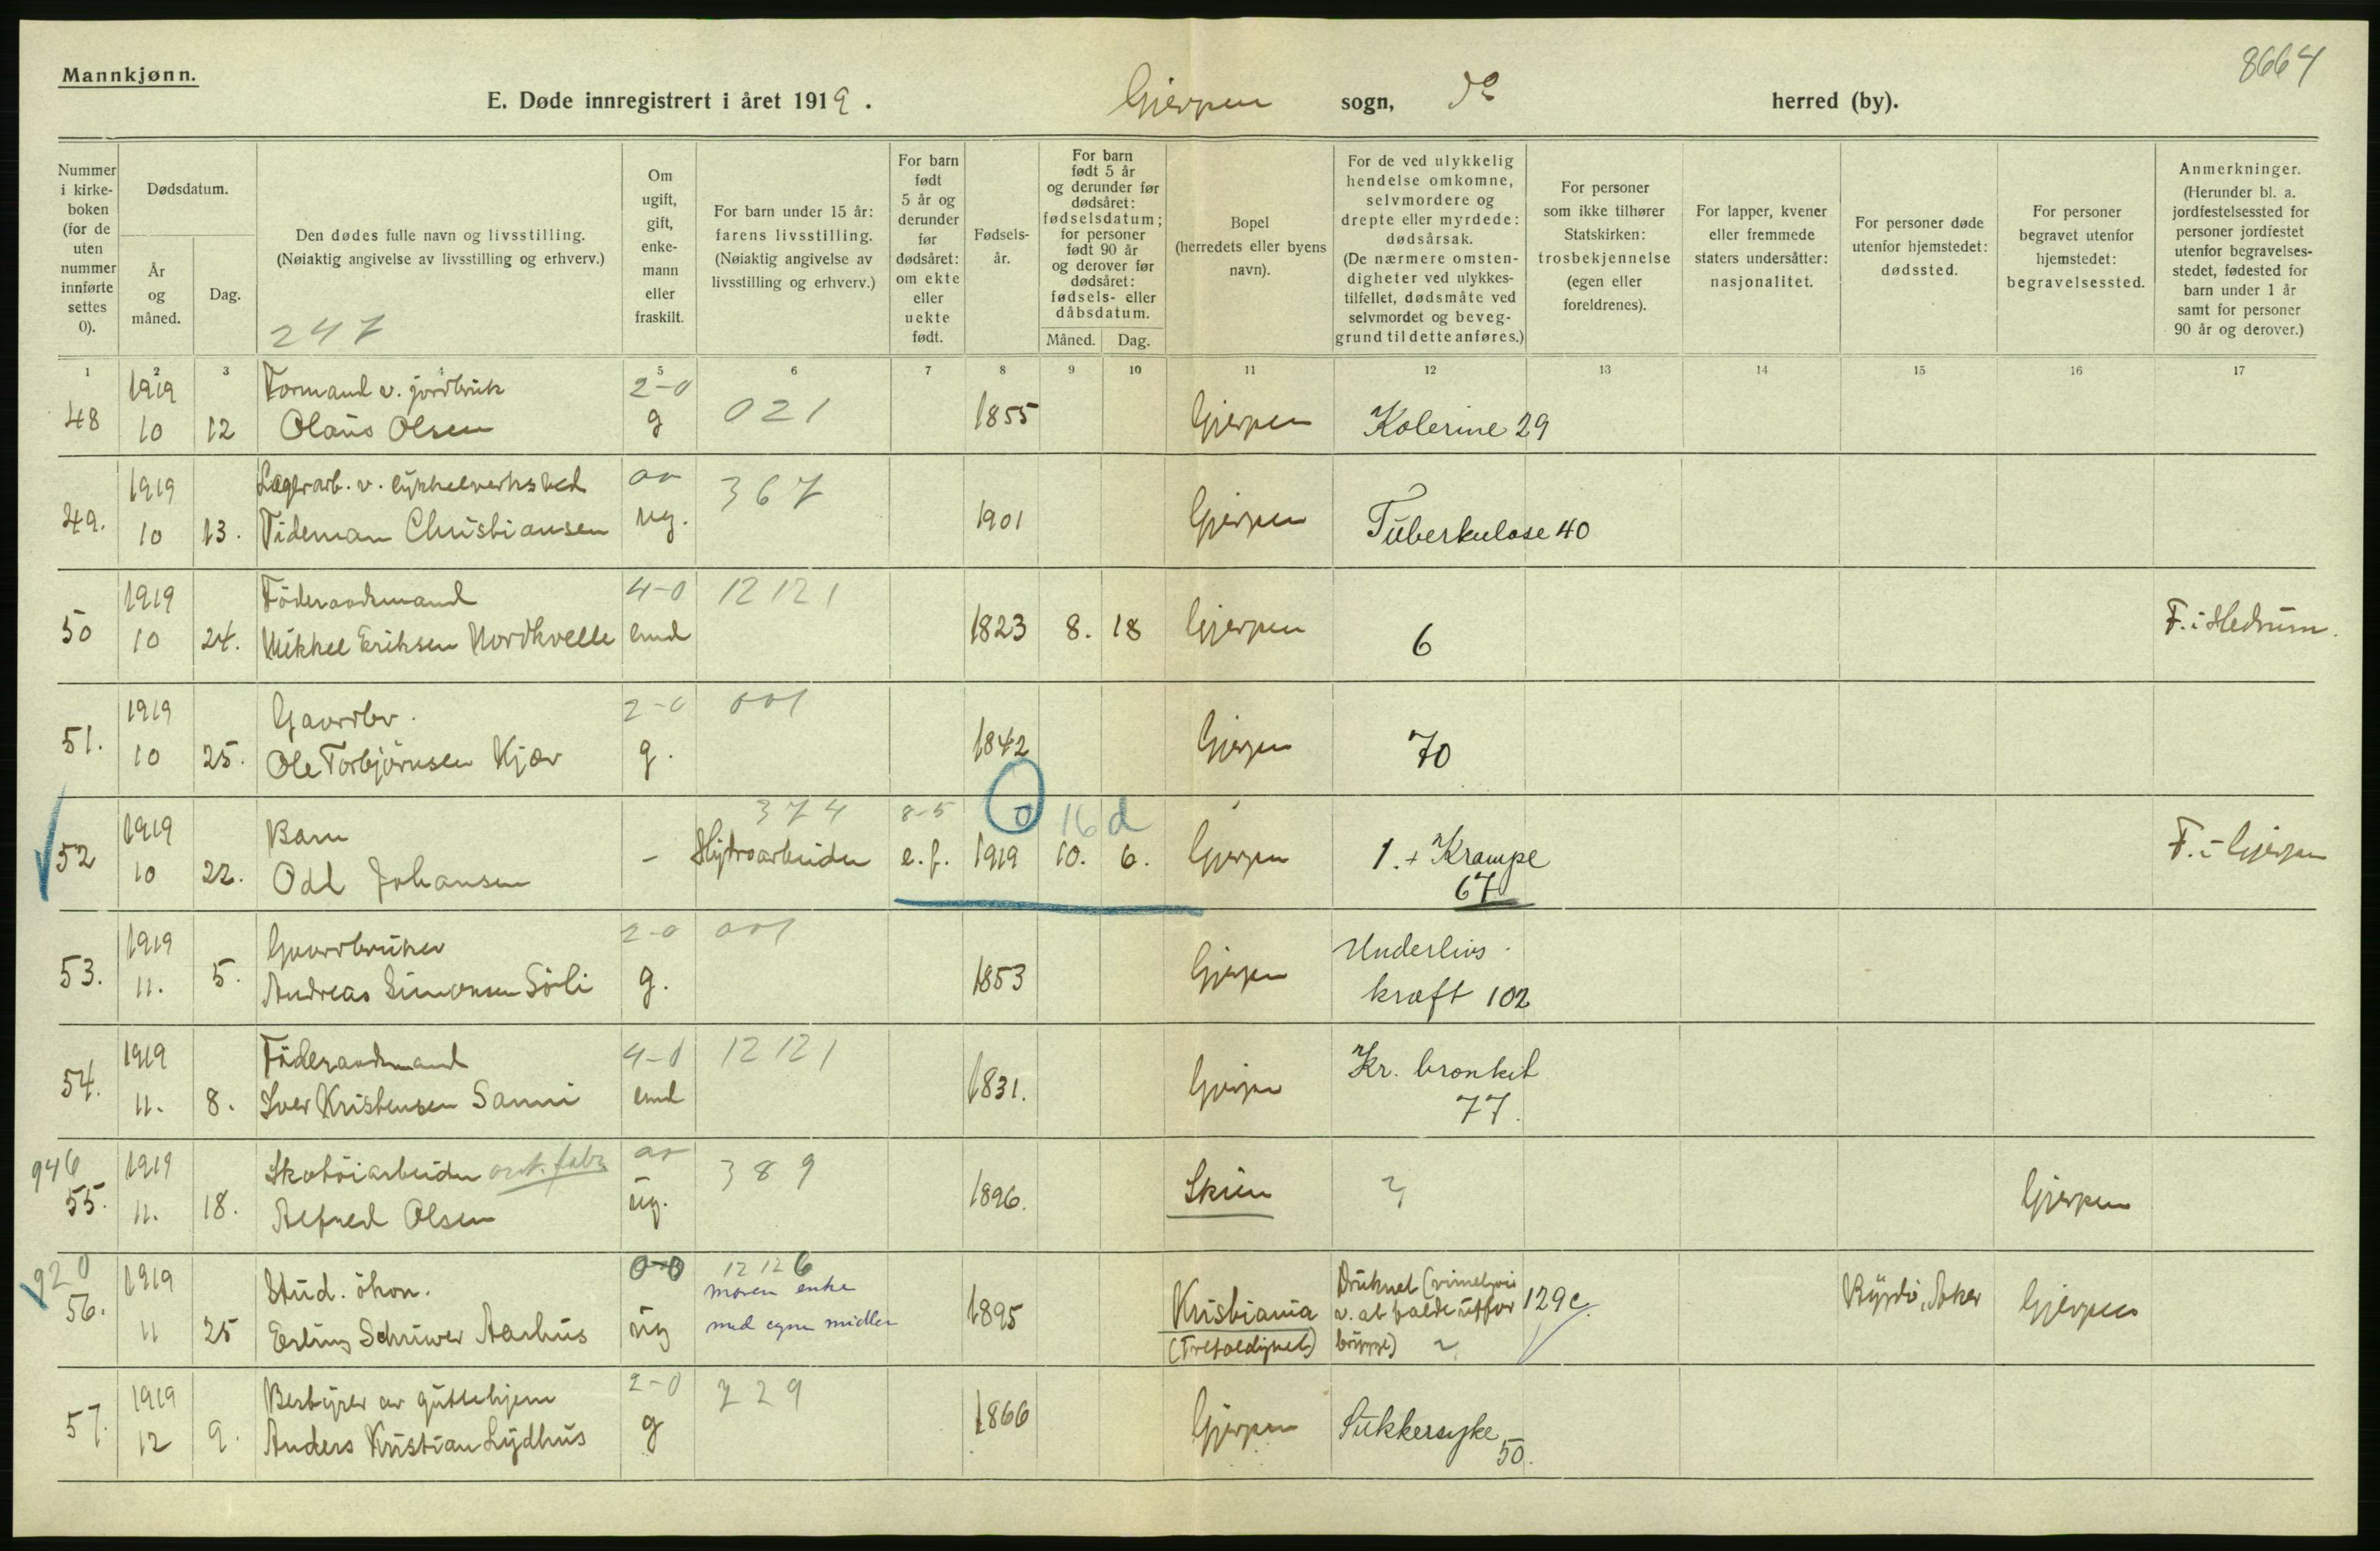 Mannkjønn.
8664
E. Døde innregistrert i året 1919. Gjerpen sogn, do herred (by).
Nummer i kirke-boken (for de uten nummer innførte settes 0).
Dødsdatum.
År og måned.
Dag.
Den dødes fulle navn og livsstilling.
(Nøiaktig angivelse av livsstilling og erhverv.)
247
Om ugift, gift, enke-mann eller fraskilt.
For barn under 15 år: farens livsstilling. (Nøiaktig angivelse av livsstilling og erhverv.)
For barn født 5 år og derunder før dødsåret: om ekte eller uekte født.
Fødsels-år.
For barn født 5 år og derunder før dødsåret: fødselsdatum; for personer født 90 år og derover før dødsåret: fødsels- eller dåbsdatum.
Måned. Dag.
Bopel (herredets eller byens navn).
For de ved ulykkelig hendelse omkomne, selvmordere og drepte eller myrdede: dødsårsak. (De nærmere omsten-digheter ved ulykkes-tilfellet, dødsmåte ved selvmordet og beveg-grund til dette anføres.)
For personer som ikke tilhører Statskirken: trosbekjennelse (egen eller foreldrenes).
For lapper, kvener eller fremmede staters undersåtter: nasjonalitet.
For personer døde utenfor hjemstedet: dødssted.
For personer begravet utenfor hjemstedet: begravelsessted.
Anmerkninger. (Herunder bl. a. jordfestelsessted for personer jordfestet utenfor begravelses-stedet, fødested for barn under 1 år samt for personer 90 år og derover.)
1 2 3 4 5 6 7 8 9 10 11 12 13 14 15 16 17
1919 Formand v. jordbruk 2-0 021
48 10 12 Olaus Olsen g 1855 Gjerpen Kolerine 29
1919 Lagerarb. v. cykkelverksted 00 367
49. 10 13. Tideman Christiansen ug. 1901 Gjerpen Tuberkulose 40
1919 Föderaadsmand 4-0 12121
50 10 24. Mikkel Eriksen Nordkvelle emd 1823 8. 18 Gjerpen 6 F. i Hedrum.
1919 Gaardbr. 2-0 001
51. 10 25. Ole Torbjörnsen Kjær g. 1842 Gjerpen 70
1919 Barn 374 8-5 0 16 d
52 10 22. Odd Johansen - Hydroarbeider e.f. 1919 10. 6. Gjerpen 1. + Krampe F. i Gjerpen
67
1919 Gaardbruker 2-0 001 Underlivs
53. 11. 5. Andreas Simonsen Sörli g. 1853 Gjerpen kræft 102
1919 Föderaadsmand 4-0 12121 Kr. bronkit
54. 11. 8. Iver Kristensen Sanni emd 1831. Gjerpen 77.
946 1919 Skotöiarbeider ant. fabr 00 389
55. 11. 18. Alfred Olsen ug. 1896. Skien ? Gjerpen
920 1919 Stud. ökon. 0-0 12126 moren enke Druknet (rimeligvis
56. 11 25 Erling Schriwer Aarhus ug med egne midler 1895 Kristiania v. at falde utfor 129c. Bygdö, Aker Gjerpen
(Trefoldighet) brygge)
1919 Bestyrer av guttehjem 2-0 729
57. 12 9. Anders Kristian Lydhus g 1866 Gjerpen Sukkersyke
50.